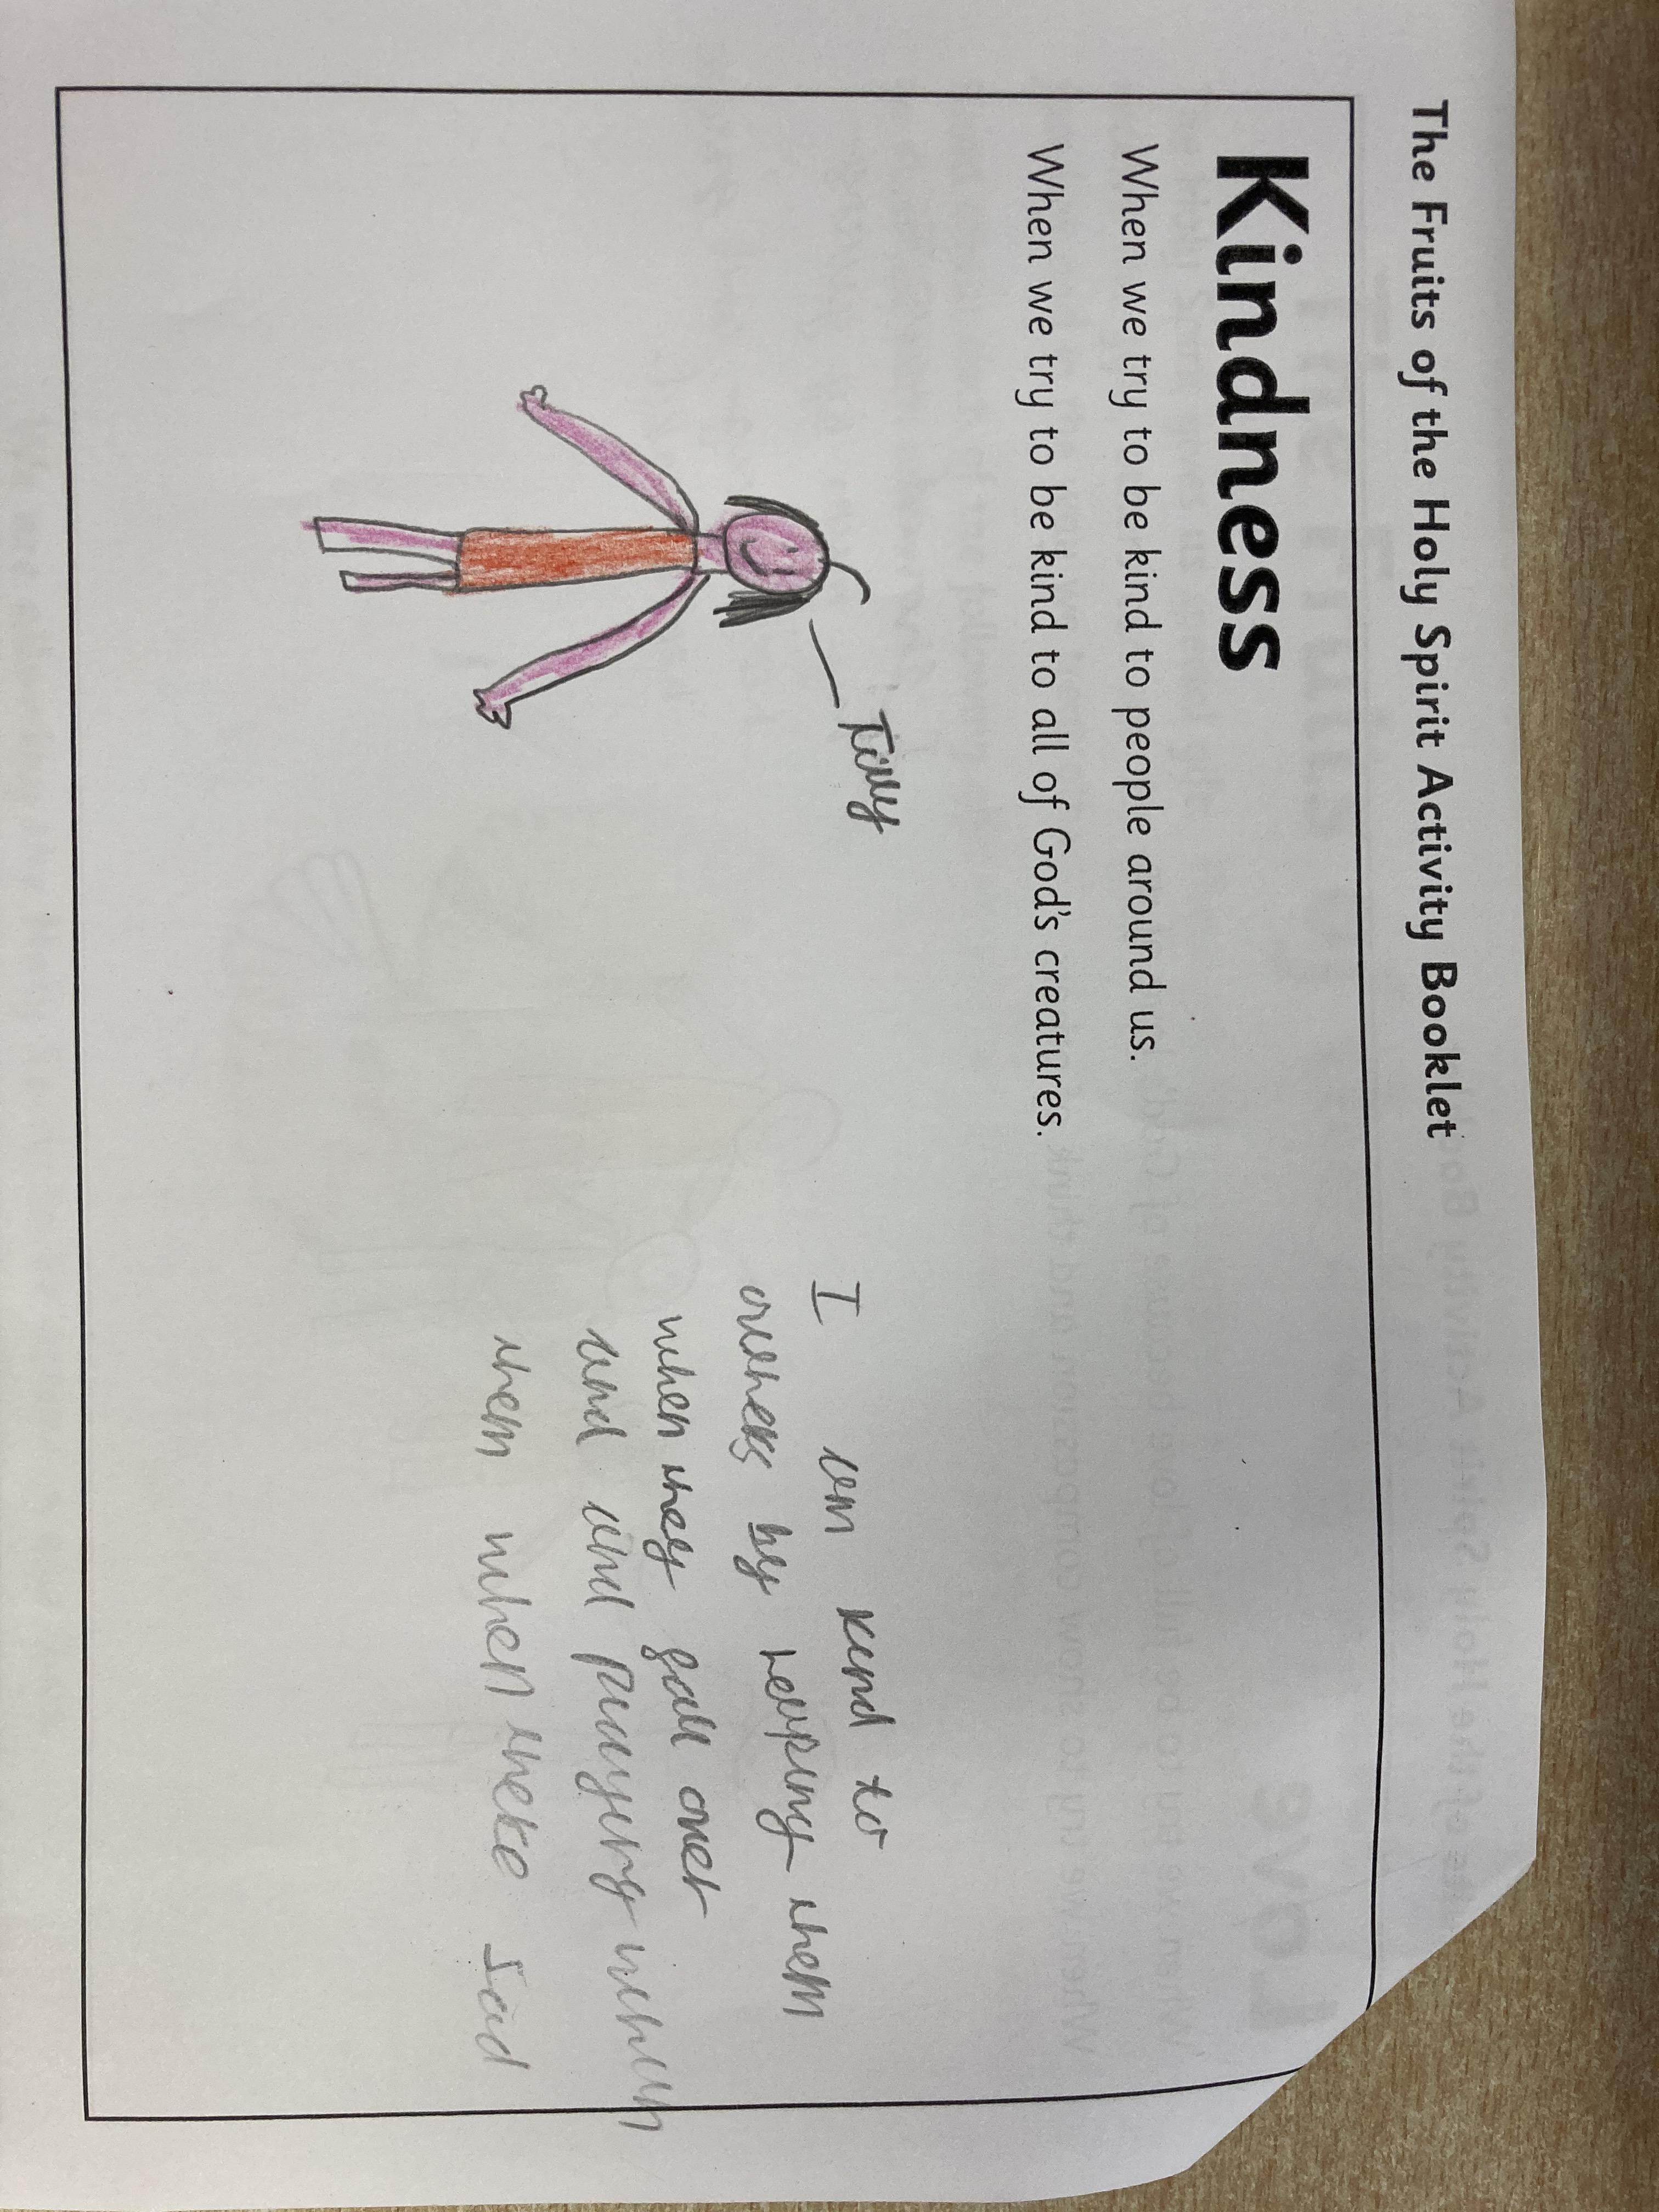 The Fruits of the Holy Spirit Activity Booklet
Kindness
When we try to be kind to people around us.
When we try to be kind to all of God's creatures.
I am kind to
others by helping them
when they fall over
and and playing
them when there sad